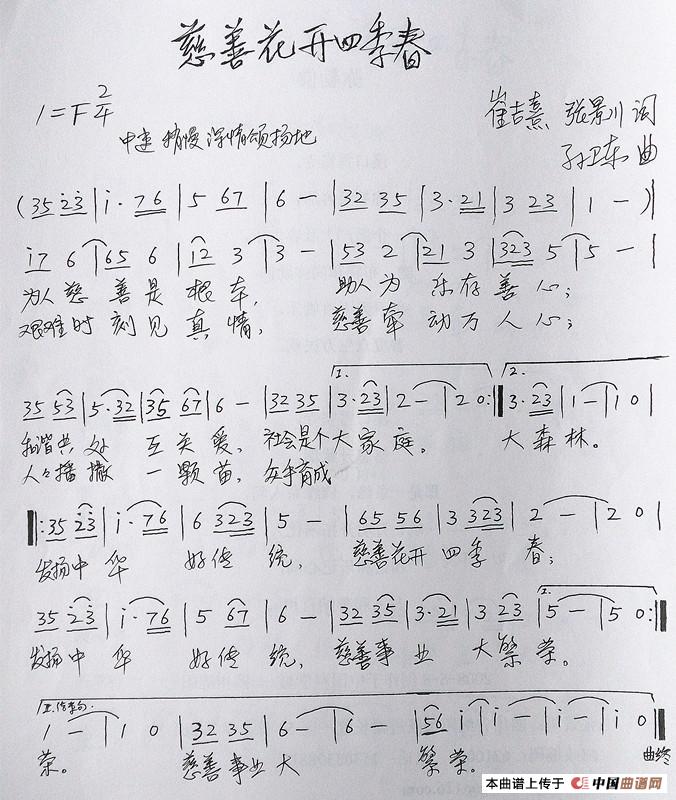 慈善花开四季春
1=F 2/4
中速 稍慢 深情颂扬地
崔吉熹 张景川 词
孙卫东 曲
(35 2̇3̇ | i· 76 | 5 67 | 6 − | 32 35 | 3· 21 | 3 23 | 1 − )|
i7 6 | 65 6 | i2 3 | 3 − | 53 2 | 21 3 | 323 5 | 5 − |
为人慈善是根本, 助人为乐存善心;
艰难时刻见真情, 慈善牵动万人心;
1. 2.
35 53 | 5· 32 | 35 67 | 6 − | 32 35 | 3· 23 | 2 − | 2 0 :| 3· 23 | 1 − | 1 0 |
和谐共处 互关爱, 社会是个大家庭。 大森林。
人人播撒 一颗苗, 众手育成
|: 35 2̇3̇ | i· 76 | 6 323 | 5 − | 65 56 | 3 323 | 2 − | 2 0 |
发扬中华 好传统, 慈善花开四季春;
1.
35 2̇3̇ | i· 76 | 5 67 | 6 − | 32 35 | 3· 21 | 3 23 | 5 − | 5 0 :|
发扬中华 好传统, 慈善事业大繁荣。
1 − | 1 0 | 32 35 | 6 − | 6 − | 56 i | i − | i − | i 0 ‖
荣。 慈善事业大 繁荣。 曲终
本曲谱上传于 中国曲谱网